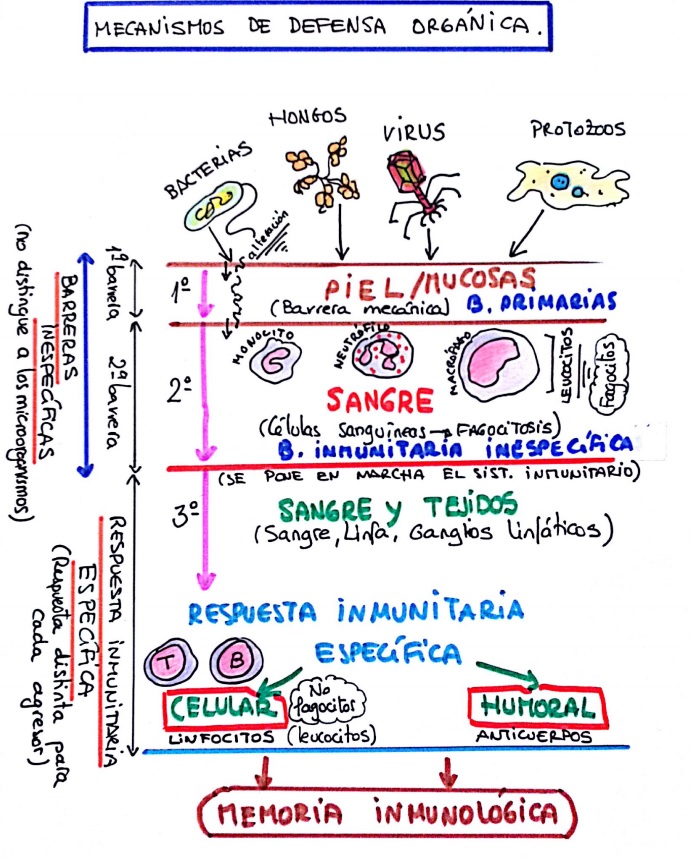 MECANISMOS DE DEFENSA ORGÁNICA.
BACTERIAS
HONGOS
VIRUS
PROTOZOOS
alteración
1ª barrera
1º
PIEL/MUCOSAS
(Barrera mecánica) B. PRIMARIAS
BARRERAS
INESPECÍFICAS
(no distingue a los microorganismos)
2ª barrera
2º
MONOCITO
NEUTRÓFILO
MACRÓFAGO
LEUCOCITOS
Fagocitos
SANGRE
(Células sanguíneas → FAGOCITOSIS)
B. INMUNITARIA INESPECÍFICA
(SE PONE EN MARCHA EL SIST. INMUNITARIO)
3º
SANGRE Y TEJIDOS
(Sangre, Linfa, Ganglios linfáticos)
RESPUESTA INMUNITARIA
ESPECÍFICA
(Respuesta distinta para
cada agresor)
RESPUESTA INMUNITARIA
ESPECÍFICA
T
B
CELULAR
No
fagocitos
LINFOCITOS (leucocitos)
HUMORAL
ANTICUERPOS
MEMORIA INMUNOLÓGICA